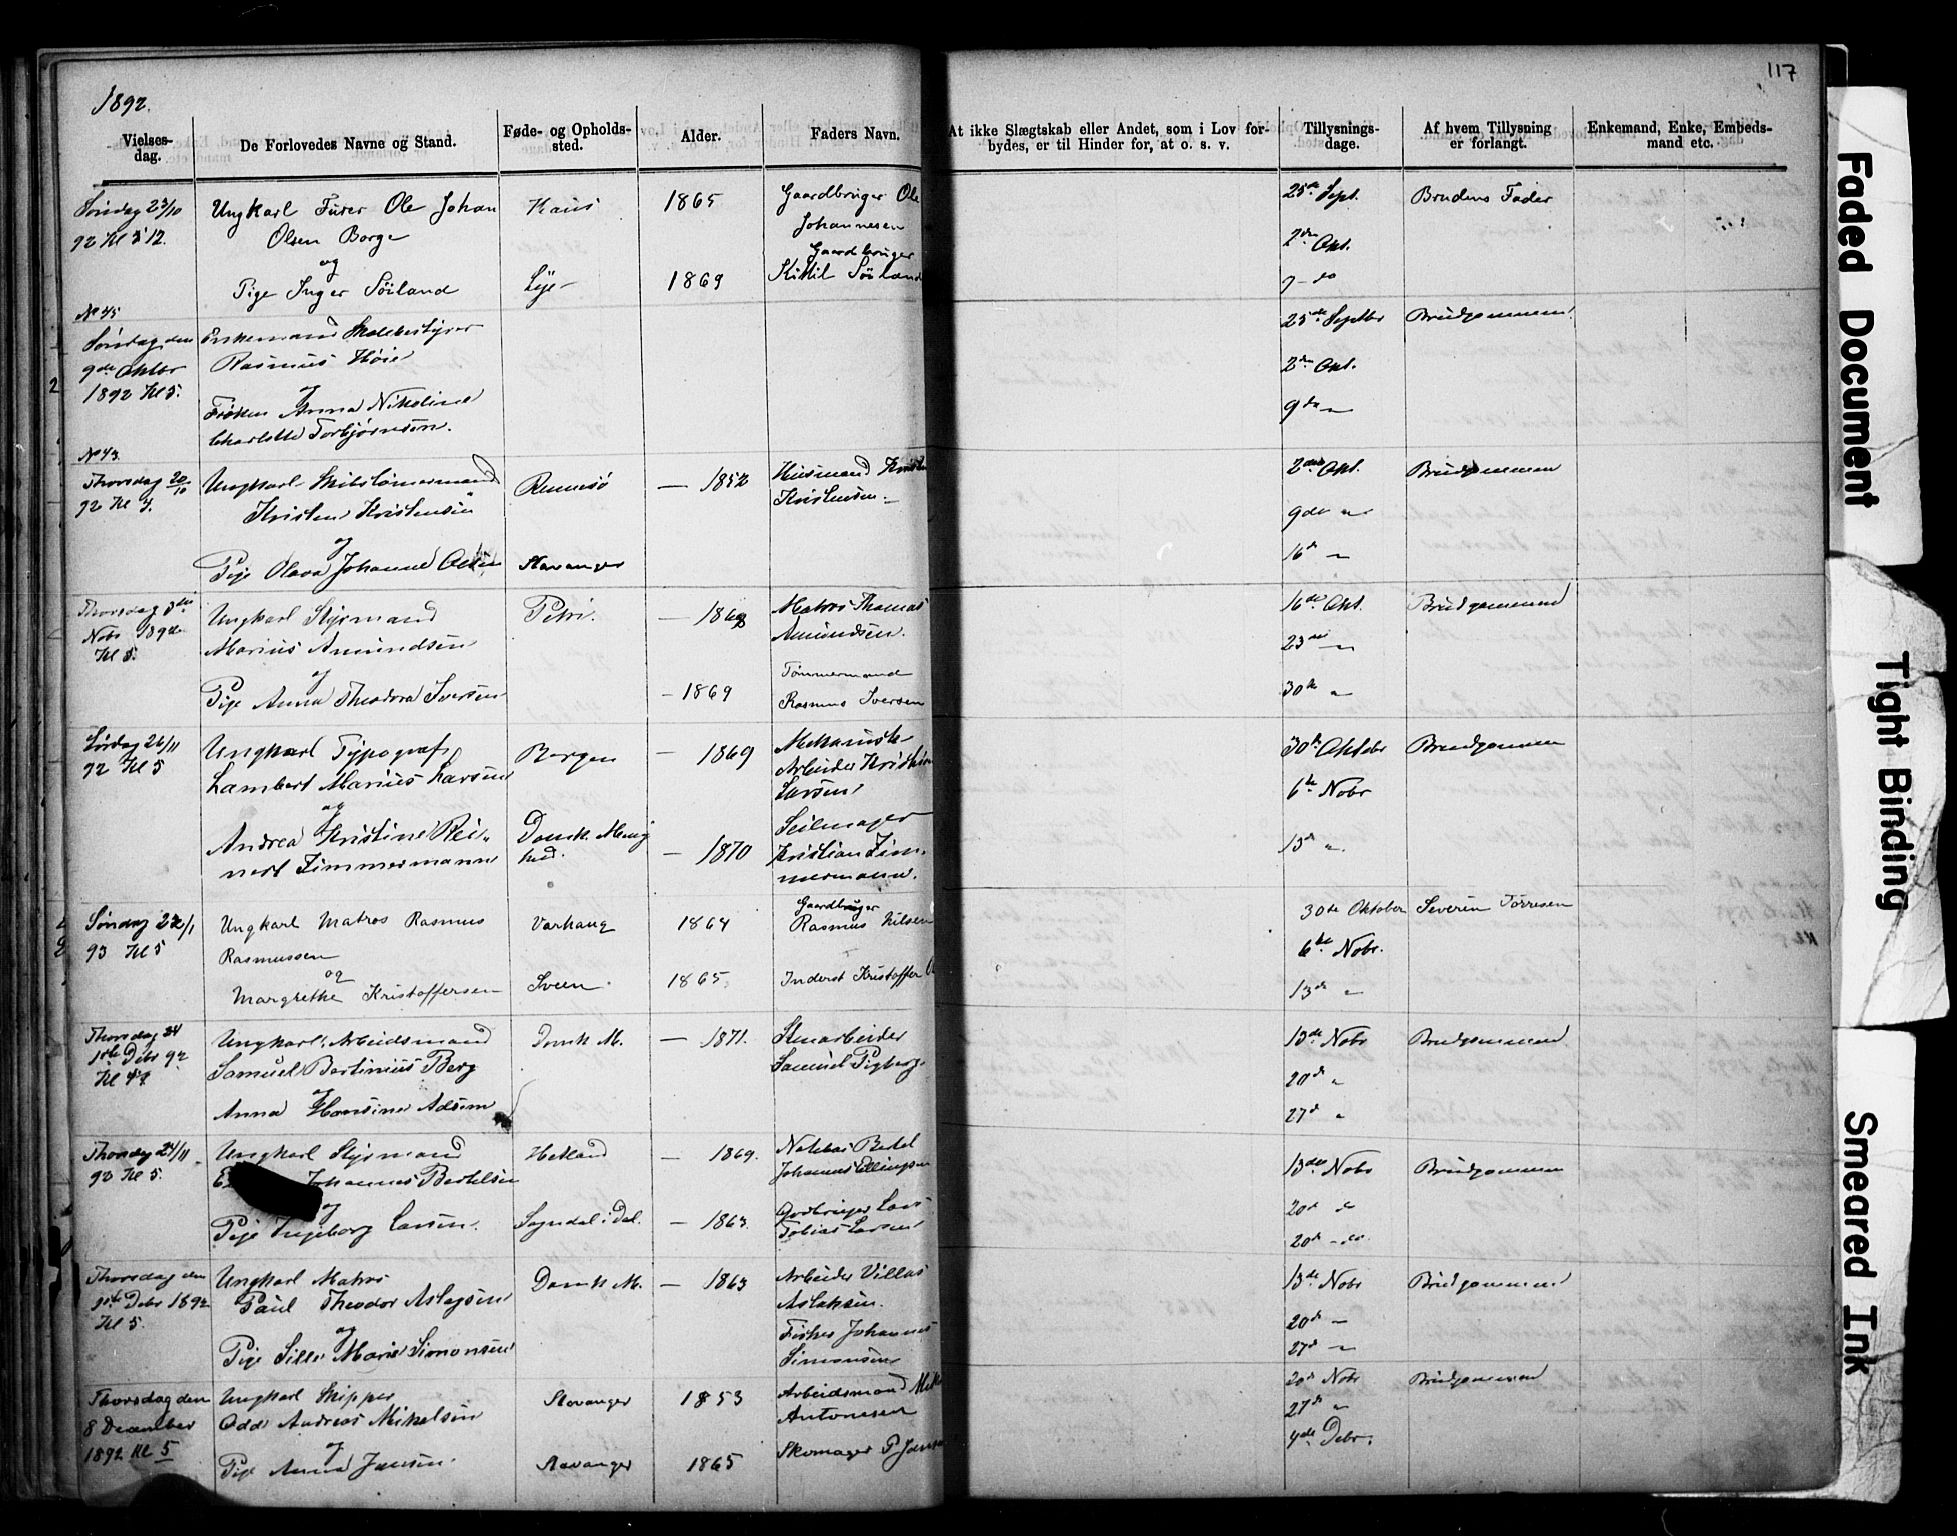 117
1892.
Vielses-
dag.
De Forlovedes Navne og Stand.
Føde- og Opholds-
sted.
Alder.
Faders Navn.
At ikke Slægtskab eller Andet, som i Lov for-
bydes, er til Hinder for, at o. s. v.
Tillysnings-
dage.
Af hvem Tillysning
er forlangt.
Enkemand, Enke, Embeds-
mand etc.
Søndag 23/10
92 Kl 5
Ungkarl Ole Johan
Olsen Borge
og
Pige Inger Söiland
Lye
1865
1869
Gaardbruger Ole
Johannesen
Gaardbruger
Kittil Söiland
25de Sept.
2den Okt.
9 do
Brudens Fader
No 45
Søndag den
9de Oktbr
1892 Kl 5.
Enkemand
Rasmus Höie
og
Frøken Anna Nikoline
Charlotte Torbjørnsen.
25de Septbr
2den Okt.
9de "
Brudgommen
No 43.
Thorsdag 20/10
92 Kl
Ungkarl Skibstømermand
Kristen Kristensen
og
Pige Olava Johanne
Rennesö
Stavanger
— 1852
Husmand
Kristensen
2den Okt.
9de "
16de "
Brudgommen
Thorsdag 3die
Nobr 1892
Kl 5.
Ungkarl Styrmand
Marius Amundsen
og
Pige Anna Theodora Iversen
Petri.
— 1869
Matros Thomas
Amundsen.
Tømmermand
Rasmus Iversen
16de Okt.
23die "
30te "
Brudgommen
Lørdag 26/11
92 Kl 5
Ungkarl Typograf
Lambert Marius Larsen
og
Andrea Kristine Rei-
nert Zimmermann
Bergen
Domk. Menig
hed.
— 1869
— 1870
Mekanisk
Arbeider Kristian
Larsen
Seilmager
Kristian Zim-
mermann.
30te Oktobr
6te Nobr
13de "
Brudgommen
Søndag 22/1
93 Kl 5
Ungkarl Matros Rasmus
Rasmussen
og
Margrethe Kristoffersen
Varhaug
Sveen
1864
1865
Gaardbruger
Rasmus Nilsen
Inderst Kristoffer
30te Oktober
6te Nobr.
13de "
Severin Törresen
Thorsdag
1ste Debr 92
Kl
Ungkarl Arbeidsmand
Samuel Bertinius Berg
og
Anna Hansine
Domk M.
— 1871.
Stenarbeider
Samuel
13de Nobr
20de "
27de "
Brudgommen
Thorsdag 24/11
92 Kl 5.
Ungkarl Styrmand
Johannes Bertelsen
og
Pige Ingeborg Larsen.
Hetland
Sogndal i Dal.
— 1869.
— 1863.
Johannes Ellingsen
Gardbruger Lars
Tobias Larsen
13de Nobr
20de do
20de do
Brudgommen
Thorsdag den
1ste Debr 1892
Kl 5.
Ungkarl Matros
Paul Theodor Aslagsen
og
Pige Sille Marie Simonsen
Domk M.
— 1863
Arbeider Villas
Aslaksen.
Fisker Johannes
Simonsen
13de Nobr
20de "
27de "
Brudgommen
Thorsdag den
8 December
1892 Kl 5
Ungkarl Skipper
Odd Andreas Mikelsen
og
Pige Anna Jansen.
Stavanger
Stavanger
1853
1865
Arbeidsmand
Antonesen
Skomager P
20de Nobr
27de "
4de Debr.
Brudgommen
Faded Document
Tight Binding
Smeared Ink